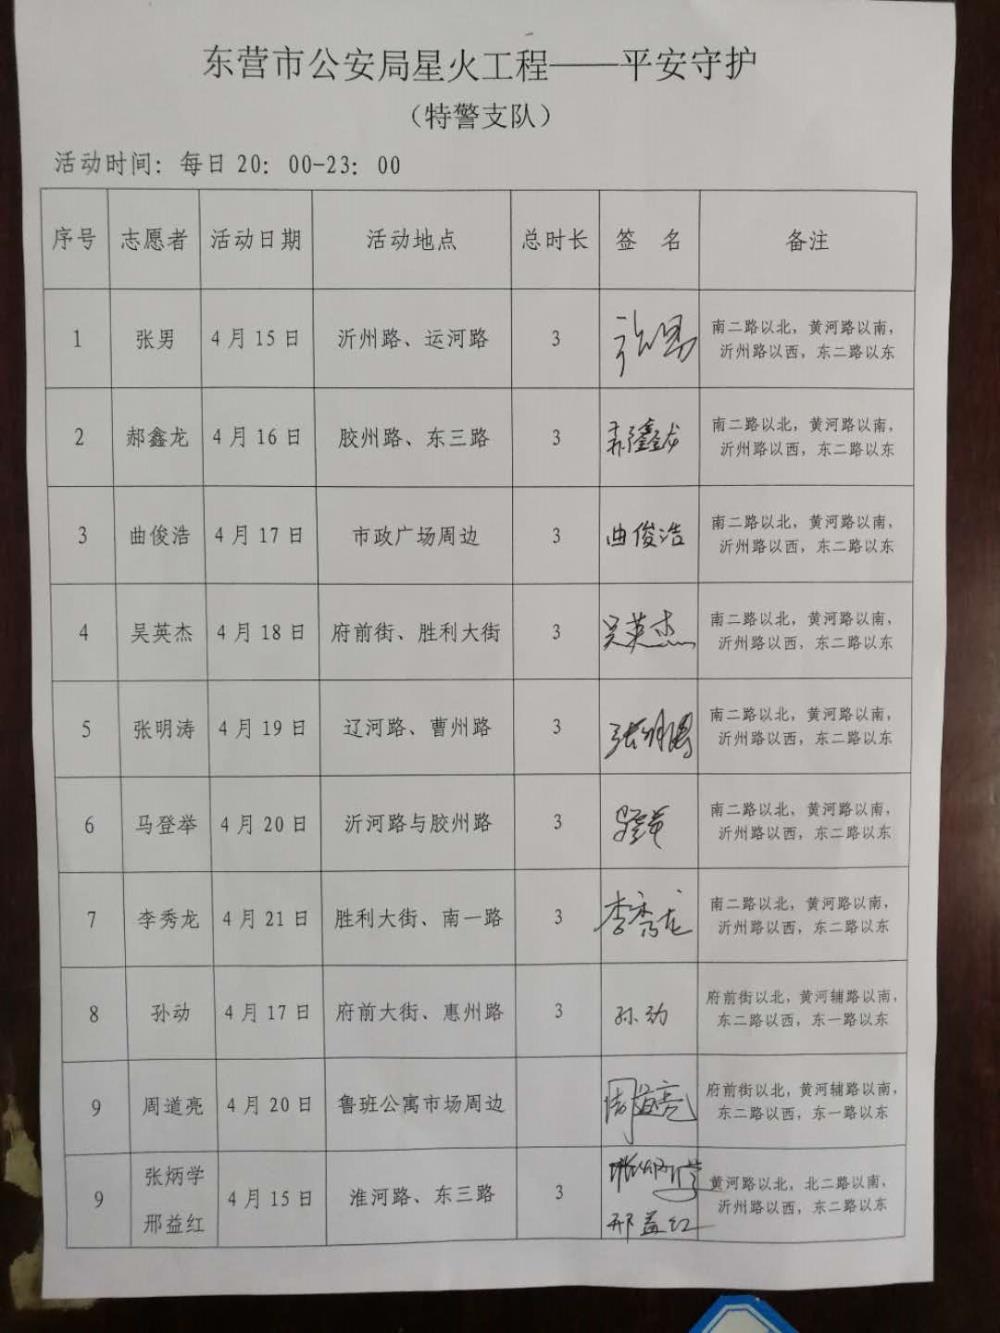 东营市公安局星火工程——平安守护
（特警支队）
活动时间：每日 20：00-23：00
序号 志愿者 活动日期 活动地点 总时长 签 名 备注
1 张男 4 月 15 日 沂州路、运河路 3 张男 南二路以北，黄河路以南，
沂州路以西，东二路以东
2 郝鑫龙 4 月 16 日 胶州路、东三路 3 郝鑫龙 南二路以北，黄河路以南，
沂州路以西，东二路以东
3 曲俊浩 4 月 17 日 市政广场周边 3 曲俊浩 南二路以北，黄河路以南，
沂州路以西，东二路以东
4 吴英杰 4 月 18 日 府前街、胜利大街 3 吴英杰 南二路以北，黄河路以南，
沂州路以西，东二路以东
5 张明涛 4 月 19 日 辽河路、曹州路 3 南二路以北，黄河路以南，
沂州路以西，东二路以东
6 马登举 4 月 20 日 沂河路与胶州路 3 南二路以北，黄河路以南，
沂州路以西，东二路以东
7 李秀龙 4 月 21 日 胜利大街、南一路 3 李秀龙 南二路以北，黄河路以南，
沂州路以西，东二路以东
8 孙动 4 月 17 日 府前大街、惠州路 3 孙动 府前街以北，黄河辅路以南，
东二路以西，东一路以东
9 周道亮 4 月 20 日 鲁班公寓市场周边 周道亮 府前街以北，黄河辅路以南，
东二路以西，东一路以东
9 张炳学 4 月 15 日 淮河路、东三路 3 张炳学 黄河路以北，北二路以南，
邢益红 邢益红 沂州路以西，东二路以东